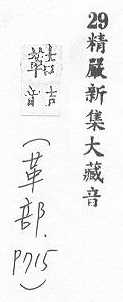 29精嚴新集大藏音
吉
音
(革部. P715)